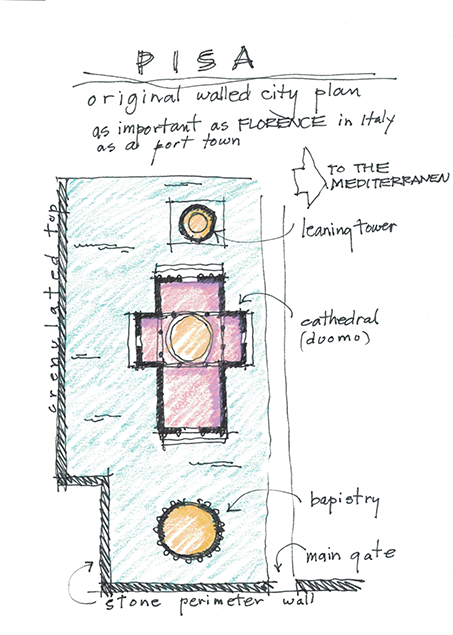 PISA
original walled city plan
as important as FLORENCE in Italy
as a port town
TO THE
MEDITERRANEN
leaning tower
crenulated top
cathedral
(duomo)
bapistry
main gate
stone perimeter wall